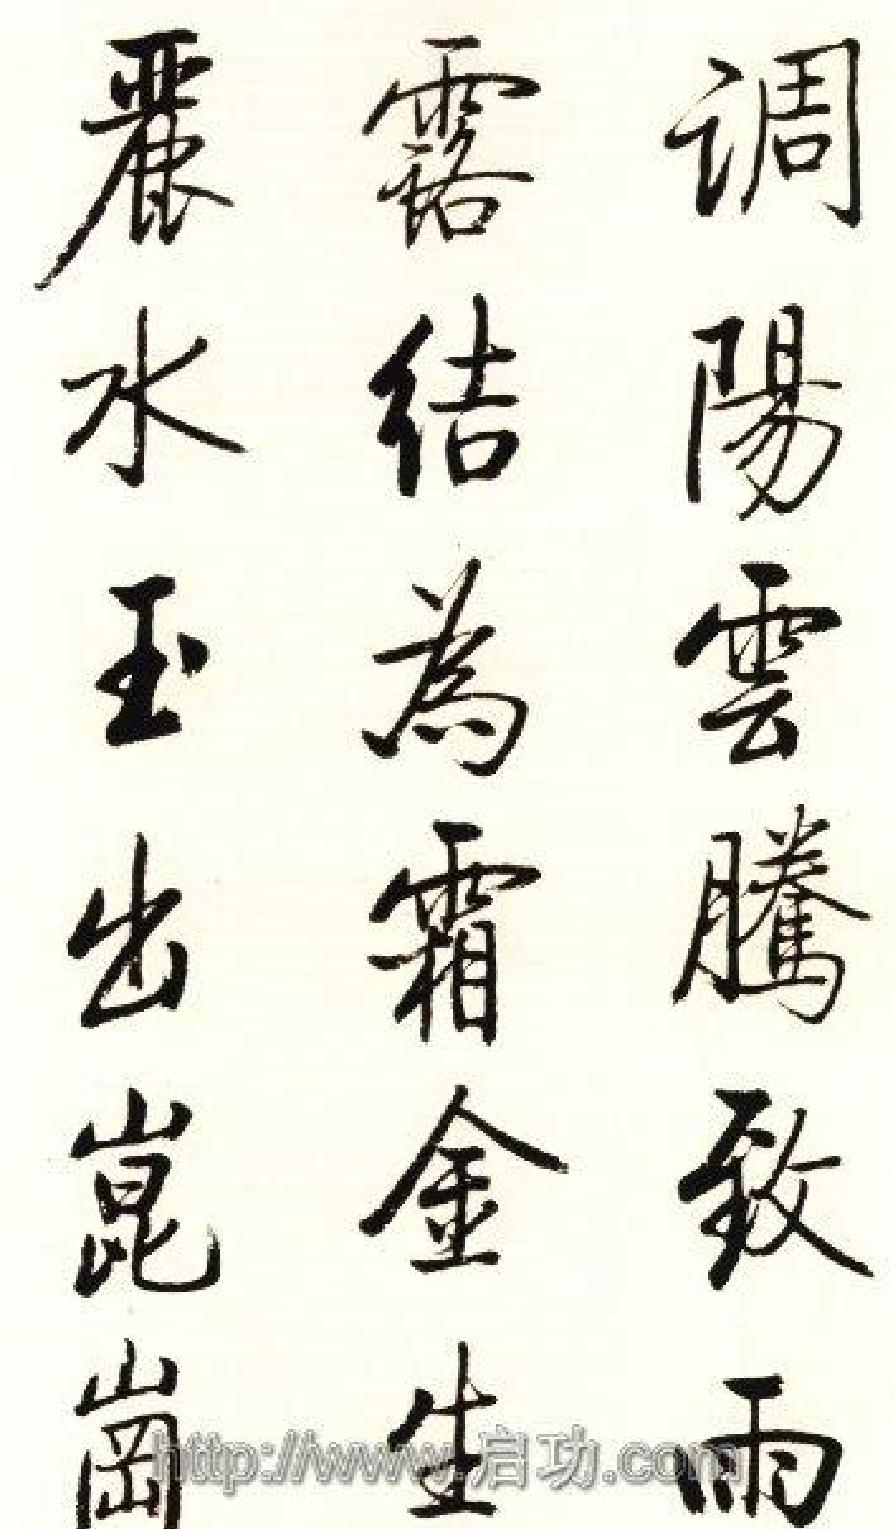 調陽雲騰致雨
露結為霜金生
麗水玉出崑崗
http://www.启功.com